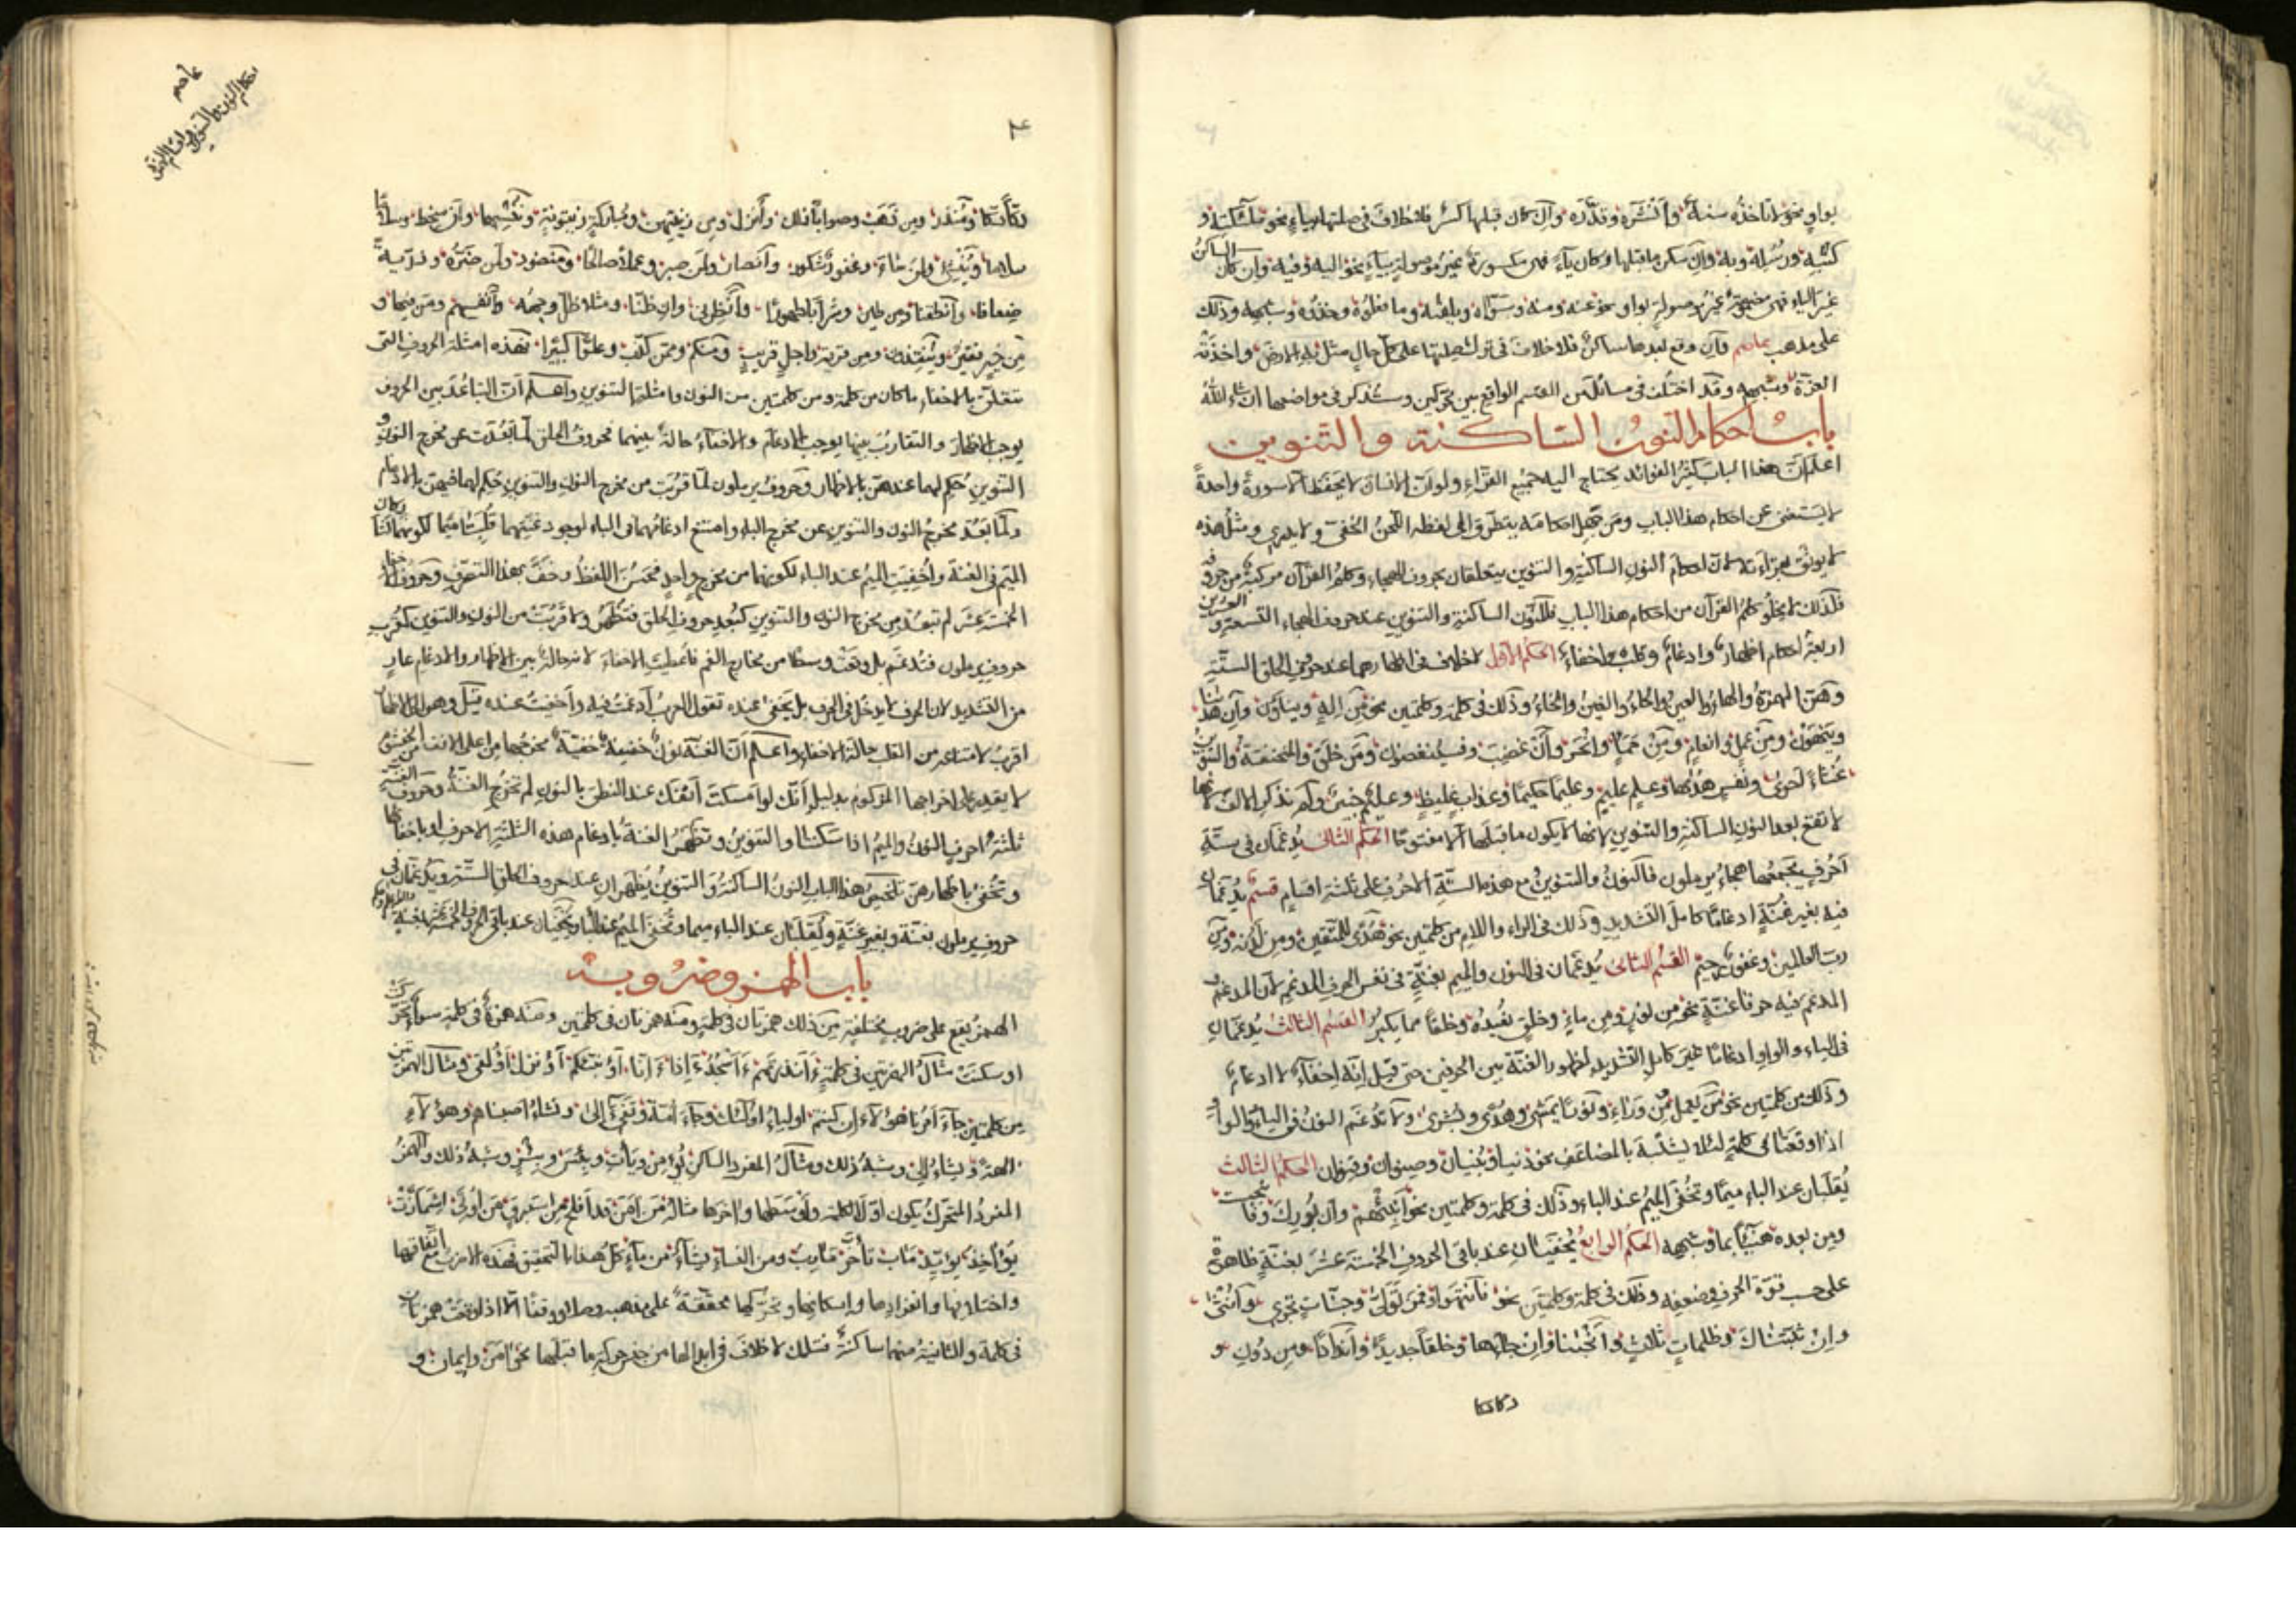 بواو نحو لا تأخذه سنة وأنشره وقدّره وإن كان قبلها كسر فلا خلاف في صلتها بياء نحو ملئكته و
كتبه ورسله وبه وإن سكن ما قبلها وكان ياء فهي مكسورة غير موصولة بياء نحو اليه وفيه وإن كان الساكن
غير الياء فهي مضمومة غير موصولة بواو نحو عنه ومنه وسوّاه ويلقه وما تفعلوه وخذوه وشبهه وذلك
على مذهب عاصم فإن وقع بعدها ساكن فلا خلاف في ترك صلتها على كل حال مثل به الارض واخذته
العزة وشبهه وقد اختلف في مسائل من القسم الواقع بين محركين وستذكر في مواضعها ان شاء الله
باب احكام النون الساكنة والتنوين
اعلم انّ هذا الباب كثير الفوائد يحتاج اليه جميع القرّاء ولو انّ الانسان لا يحفظ الا سورة واحدة
لا يستغنى عن احكام هذا الباب ومن جهل احكامه يتطرق الى لفظه اللحن الخفى ولا يدري ومثل هذه
لا يوثق بقراءته لانّ احكام النون الساكنة والتنوين يتعلقان بحروف الهجاء وكلم القرآن مركبة من حروف
فلذلك لا يخلو كلم القرآن من احكام هذا الباب فللنون الساكنة والتنوين عند حروف الهجاء التسعة والعشرين
اربعة احكام اظهار وادغام وقلب واخفاء الحكم الاول لا خلاف في اظهارهما عند حروف الحلق الستة
وهنّ الهمزة والهاء والعين والحاء والغين والخاء وذلك في كلمة وكلمتين نحو من اله وينأون وإن هذا
وينهون ومن عمل وانعام ومن حمأ وانحر وإن غضب وفسينغضون ومن خلق والمنخنقة والتنوين
غثاء أحوى ونفس هداها وعليم عليم وعليما حكيما وعذاب غليظ وعليم خبير ولم نذكر الالف لانها
لا تقع بعد النون الساكنة والتنوين لانها لا يكون ما قبلها الا مفتوحا الحكم الثانى يدغمان في ستة
احرف يجمعها هجاء يرملون فالنون والتنوين مع هذه الستة الاحرف على ثلثة اقسام قسم يدغمان
فيه بغير غنة ادغاما كامل التشديد وذلك في الراء واللام من كلمتين نحو هدى للمتقين ومن لدنه ومن
رب العالمين وغفور رحيم القسم الثانى يدغمان في النون والميم بغنة في نفس الحرف المدغم لان المدغم
المدغم فيه حرفا غنة نحو من نور ومن ماء وخلق نعيده وخلقا مما يكبر القسم الثالث يدغمان
في الياء والواو ادغاما غير كامل التشديد لظهور الغنة بين الحرفين حتى قيل انّه اخفاء لا ادغام
وذلك من كلمتين نحو من يعمل ومن وراء ونورا يمشى وهدى وبشرى ولا تدغم النون في الياء والواو
اذا وقعتا في كلمة لئلا يشتبه بالمضاعف نحو دنيا وبنيان وصنوان وقنوان الحكم الثالث
يقلبان عند الباء ميما وتخفى الميم عند الباء وذلك في كلمة وكلمتين نحو انبئهم وان بورك وفانبجست
ومن بعده هنيئا بما وشبهه الحكم الرابع يخفيان عند باقى الحروف الخمسة عشر بغنة ظاهرة
على حسب قوة الحرف وضعفه وذلك في كلمة وكلمتين نحو فأنتم وفمن تولى وجنات تجرى وأنثى
وان ثبتناك وظلمات ثلاث وأنجيناو وان جاءها وخلقا جديد وأندادا ومن دون و
دكا دكا
احكام النون والتنوين واقسام الهمزة
عاصم
٣
دكا دكا ومنذر ومن ذهب وصوابا ذلك وأنزل ومن زينتهن ومباركة زيتونة وننسها وأن سخط وسلاما
سلاما وينشئ ولمن شاء وغفور شكور وأنصار ولمن صبر وعملا صالحا ومنضود ولمن ضره وذرية
ضعافا وأنطقنا ومن طين وشرابا طهورا وأنظرنى وان ظنا ومثلا ظل وجهه وأنفسهم ومن فيها و
من خير فقير وينقذون ومن قرية واجل قريب ومنكم وممن كذب وعلوّا كبيرا فهذه امثلة الحروف التى
تتعلق بالاخفاء ما كان من كلمة ومن كلمتين من النون وامثلة التنوين واعلم انّ التباعد بين الحروف
يوجب الاظهار والتقارب بينها يوجب الادغام والاخفاء حالة بينهما فحروف الحلق لما بعدت عن مخرج النون و
التنوين حكم لهما عندهنّ بالاظهار وحروف يرملون لما قربت من مخرج النون والتنوين حكم لهما فيهنّ بالادغام
ولما بعد مخرج النون والتنوين عن مخرج الباء وامتنع ادغامهما في الباء لوجود غنتهما قلبتا ميما لكونهما
الميم في الغنة واخفيت الميم عند الباء لكونهما من مخرج واحد فحسن اللفظ وخفّ بهذا التصرف وحروف الاخفاء
الخمسة عشر لم تبعد من مخرج النون والتنوين كبعد حروف الحلق فتظهر ولا قربت من النون والتنوين كقرب
حروف يرملون فتدغم بل وقعت وسطا من مخارج الفم فاعطيت الاخفاء لانه حالة بين الاظهار والادغام عار
من التشديد لان الحرف لا يدخل في الحرف بل يخفى عنده تقول العرب أدغمت فيه وأخفيت عنده قيل وهو الى الاظهار
اقرب لامتناعه من القلب حالة الاخفاء واعلم أنّ الغنة نون خفيفة خفية مخرجها من اعلى الانف من الخيشوم
لا يقدر على اخراجها المزكوم بدليل أنّك لو امسكت أنفك عند النطق بالنون لم تخرج الغنة وحروف الغنة
ثلثة احرف النون والميم اذا سكنتا والتنوين وتظهر الغنة بادغام هذه الثلثة الاحرف او باخفائها
وتخفى باظهارهنّ تلخيص هذا الباب النون الساكنة والتنوين يظهران عند حروف الحلق الستة ويدغمان في
حروف يرملون بغنة وبغير غنة ويقلبان عند الباء ميما وتخفى الميم عند الباء ويخفيان عند باقى الحروف الخمسة عشر بغنة
باب الهمز وضروبه
الهمز يقع على ضروب مختلفة من ذلك همزتان في كلمة ومنه همزتان في كلمتين ومنه همزة في كلمة سواء تحركت
او سكنت مثال الهمزتين في كلمة ءأنذرتهم ءأسجد ءاذا ءانا أؤنبئكم أؤنزل أؤلقى ومثال الهمزتين
من كلمتين جاء أمرنا هؤلاء ان كنتم اولياء اولئك وجاء امة وتفىء الى ونشاء اصبناهم وهؤلاء
الهة ويشاء الى وشبه ذلك ومثال المفرد الساكن يؤمن ويأت وبئس وبئر وشبه ذلك والهمز
المفرد المتحرك يكون اول الكلمة واوسطها واخرها مثاله من امن قد أفلح من استبرق من أوتى اشمأزت
يؤاخذ يؤيد مآب تأخر مآرب ومن النساء يشاء من ماء كل هذا بالتحقيق فهذه الاضرب مع اتفاقها
واختلافها وانفرادها واسكانها وتحركها محققة على مذهب وصلا ووقفا الّا اذا وقعت همزتان
في كلمة والثانية منهما ساكنة فتلك لا خلاف في ابدالها من جنس حركة ما قبلها نحو امن وايمان و